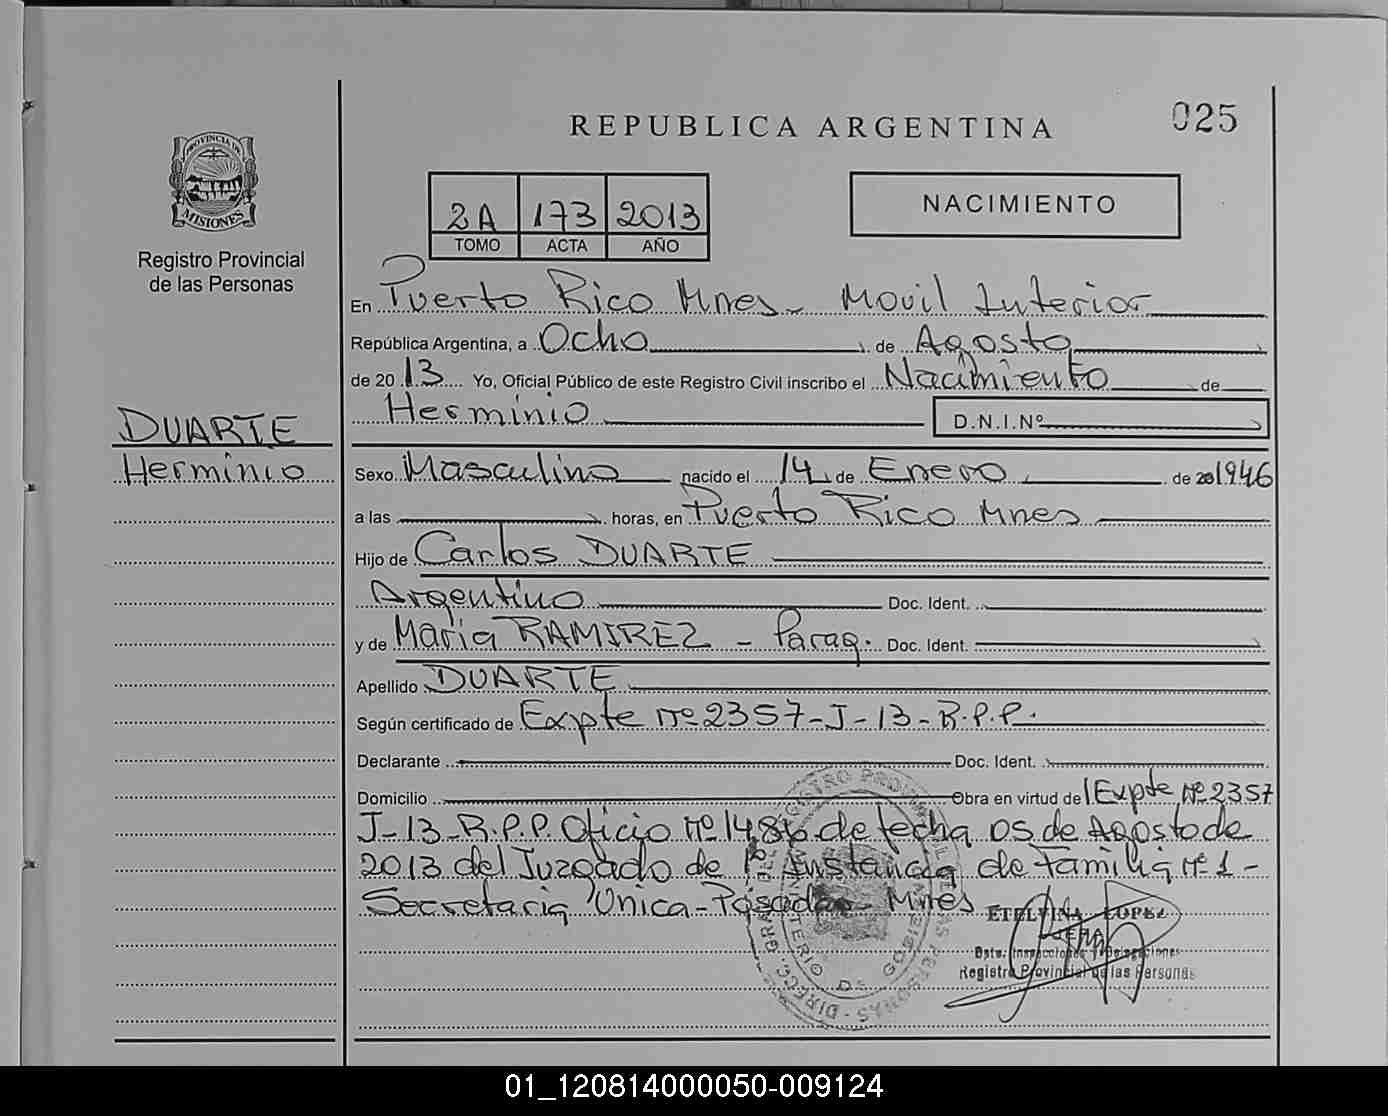 REPUBLICA ARGENTINA
025
PROVINCIA DE
MISIONES
Registro Provincial
de las Personas
2A 173 2013
TOMO ACTA AÑO
NACIMIENTO
En Puerto Rico Mnes - Movil Interior
República Argentina, a Ocho de Agosto
de 20 13 Yo, Oficial Público de este Registro Civil inscribo el Nacimiento de
Herminio D.N.I.Nº
DUARTE
Herminio
Sexo Masculino nacido el 14 de Enero de 20 1946
a las horas, en Puerto Rico Mnes
Hijo de Carlos DUARTE
Argentino Doc. Ident.
y de Maria RAMIREZ - Parag. Doc. Ident.
Apellido DUARTE
Según certificado de Expte Nº 2357-J-13-R.P.P.
Declarante Doc. Ident.
Domicilio Obra en virtud de Expte Nº 2357
J-13-R.P.P. Oficio Nº 1486 de fecha 05 de Agosto de
2013 del Juzgado de 1º Instancia de Familia Nº 1 -
Secretaria Unica - Posadas - Mnes
ETELVINA LOPEZ
JEFA
Dpto. Inspecciones y Delegaciones
Registro Provincial de las Personas
01_120814000050-009124